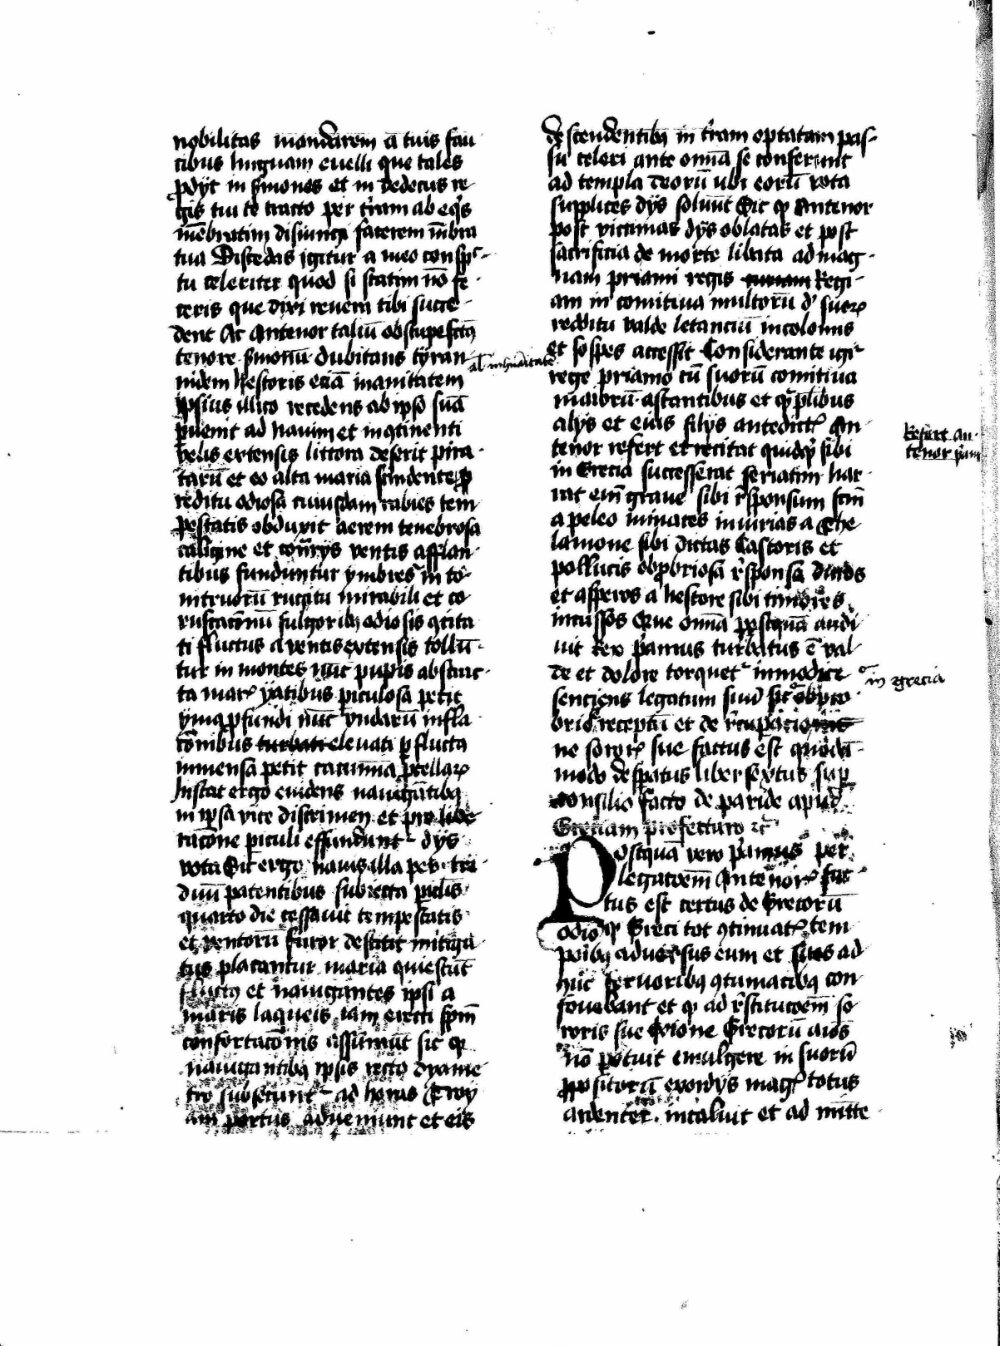 nobilitas mandarem a tuis fau
cibus linguam euelli que tales
ꝓdijt in ẜmones et in dedecus re
gis tui te tracto per t͛ram ab eqͥs
me̅bratim disiuncta facerem me̅bra
tua Discedas igitur a meo conspec
tu celeriter quod si statim no̅ fe
ceris que dixi reuera tibi succe
dent Ac Antenor taliu̅ obstupefactꝰ
tenore ẜmonu̅ dubitans tyran
nidem Nestoris etia̅ inanitatem
ipsius illico recedens ab ipso sua̅
ꝑuenit ad nauim et in ꝯtinenti
velis extensis littora deserit pira
taru̅ et eo alta maria scindente ꝓ
reditu odiosa cuiusdam rabies tem
pestatis obduxit aerem tenebrosa
caligine et ꝯt͛rijs ventis afflan
tibus funduntur ymbres in to
nitruoru̅ rugitu mirabili et co
ruscac̅onu̅ fulgoribꝰ odiosis ꝯcita
ti fluctus a ventis extensis tollu̅
tur in montes nu̅c pupis abstrac
ta maꝝ hiatibus piculosa petit
yma ꝓfundi nu̅c vndaru̅ infla
c̅onibus turbati eleuati ꝑ flucta
inmensa petit cacumina ꝓcellaꝝ
Instat ergo euidens nauigantibꝰ
in ip̅sa vite discrimen et pro libe
rac̅one ꝑiculi effundunt͛ dijs
vota Sic ergo nauis illa per tri
duu̅ patentibus subrecta ꝑiclis
quarto die cessauit tempestatis
et ventoru̅ furor destitit mitiga
tus placantur maria quiescu̅t
fluctꝰ et nauigantes ipsi a
maris laqueis iam erecti sp̅m
confortac̅onis assumu̅t sic ꝙ
nauigantibꝰ ipsis recto dyame
tro subsecunt͛ ad horas Troy
am portus adueniunt et eis
al̅ inhu̅ditate̅
descendentibꝰ in t͛ram optatam pas
su celeri ante om̅ia se conferu̅t
ad templa deoru̅ vbi eoru̅ vota
supplices dijs soluu̅t Sic ꝙ Antenor
post victimas dijs oblatas et post
sacrificia de morte libata ad mag
nam priami regis nunam Regi
am in comitiua multoru̅ d͛ suoꝝ
redditu valde letanciu̅ incolomis
et sospes accessit Considerante igr̅
rege priamo cu̅ suoru̅ comitiua
maioru̅ astantibus et qͣ̅plibus
alijs et eius filijs antedictꝭ An
tenor refert et recitat quidqͥd sibi
in Grecia successerat seriatim nar
rat eni̅ graue sibi r̅sponsum fc̅m
a peleo minaces iniurias a The
lamone sibi dictas Castoris et
pollucis obꝓbriosa r̅sponsa diras
et asperos a nestore sibi timores
incussos Que om̅ia postqua̅ audi
uit Rex priamus turbatus e̅ val
de et dolore torquet͛ inmodice
senciens legatum suu̅ sic obpro
briose receptu̅ et de r̅cuperacio
ne soroꝝ sue factus est quoda̅
modo desperatus liber sextus sup̱
consilio facto de paride apud
Greciam profecturo ⁊c͛
Postqua̅ vero priamus per
legac̅oem Antenoꝝ fac
tus est certus de Grecoru̅
odio ꝙ Greci tot ꝯtinuatꝭ tem
poribꝰ aduersus eum et suos ad
huc feruoribꝰ ꝯtumacibꝰ con
fouebant et ꝙ ad r̅stituc̅oem so
roris sue Exione Grecoru̅ aios
no̅ potuit emulgere in suoru̅
ꝓpositoru̅ exordijs magꝭ totus
ardenter incaluit et ad mitte
in grecia
Refert an
tenor p̅am